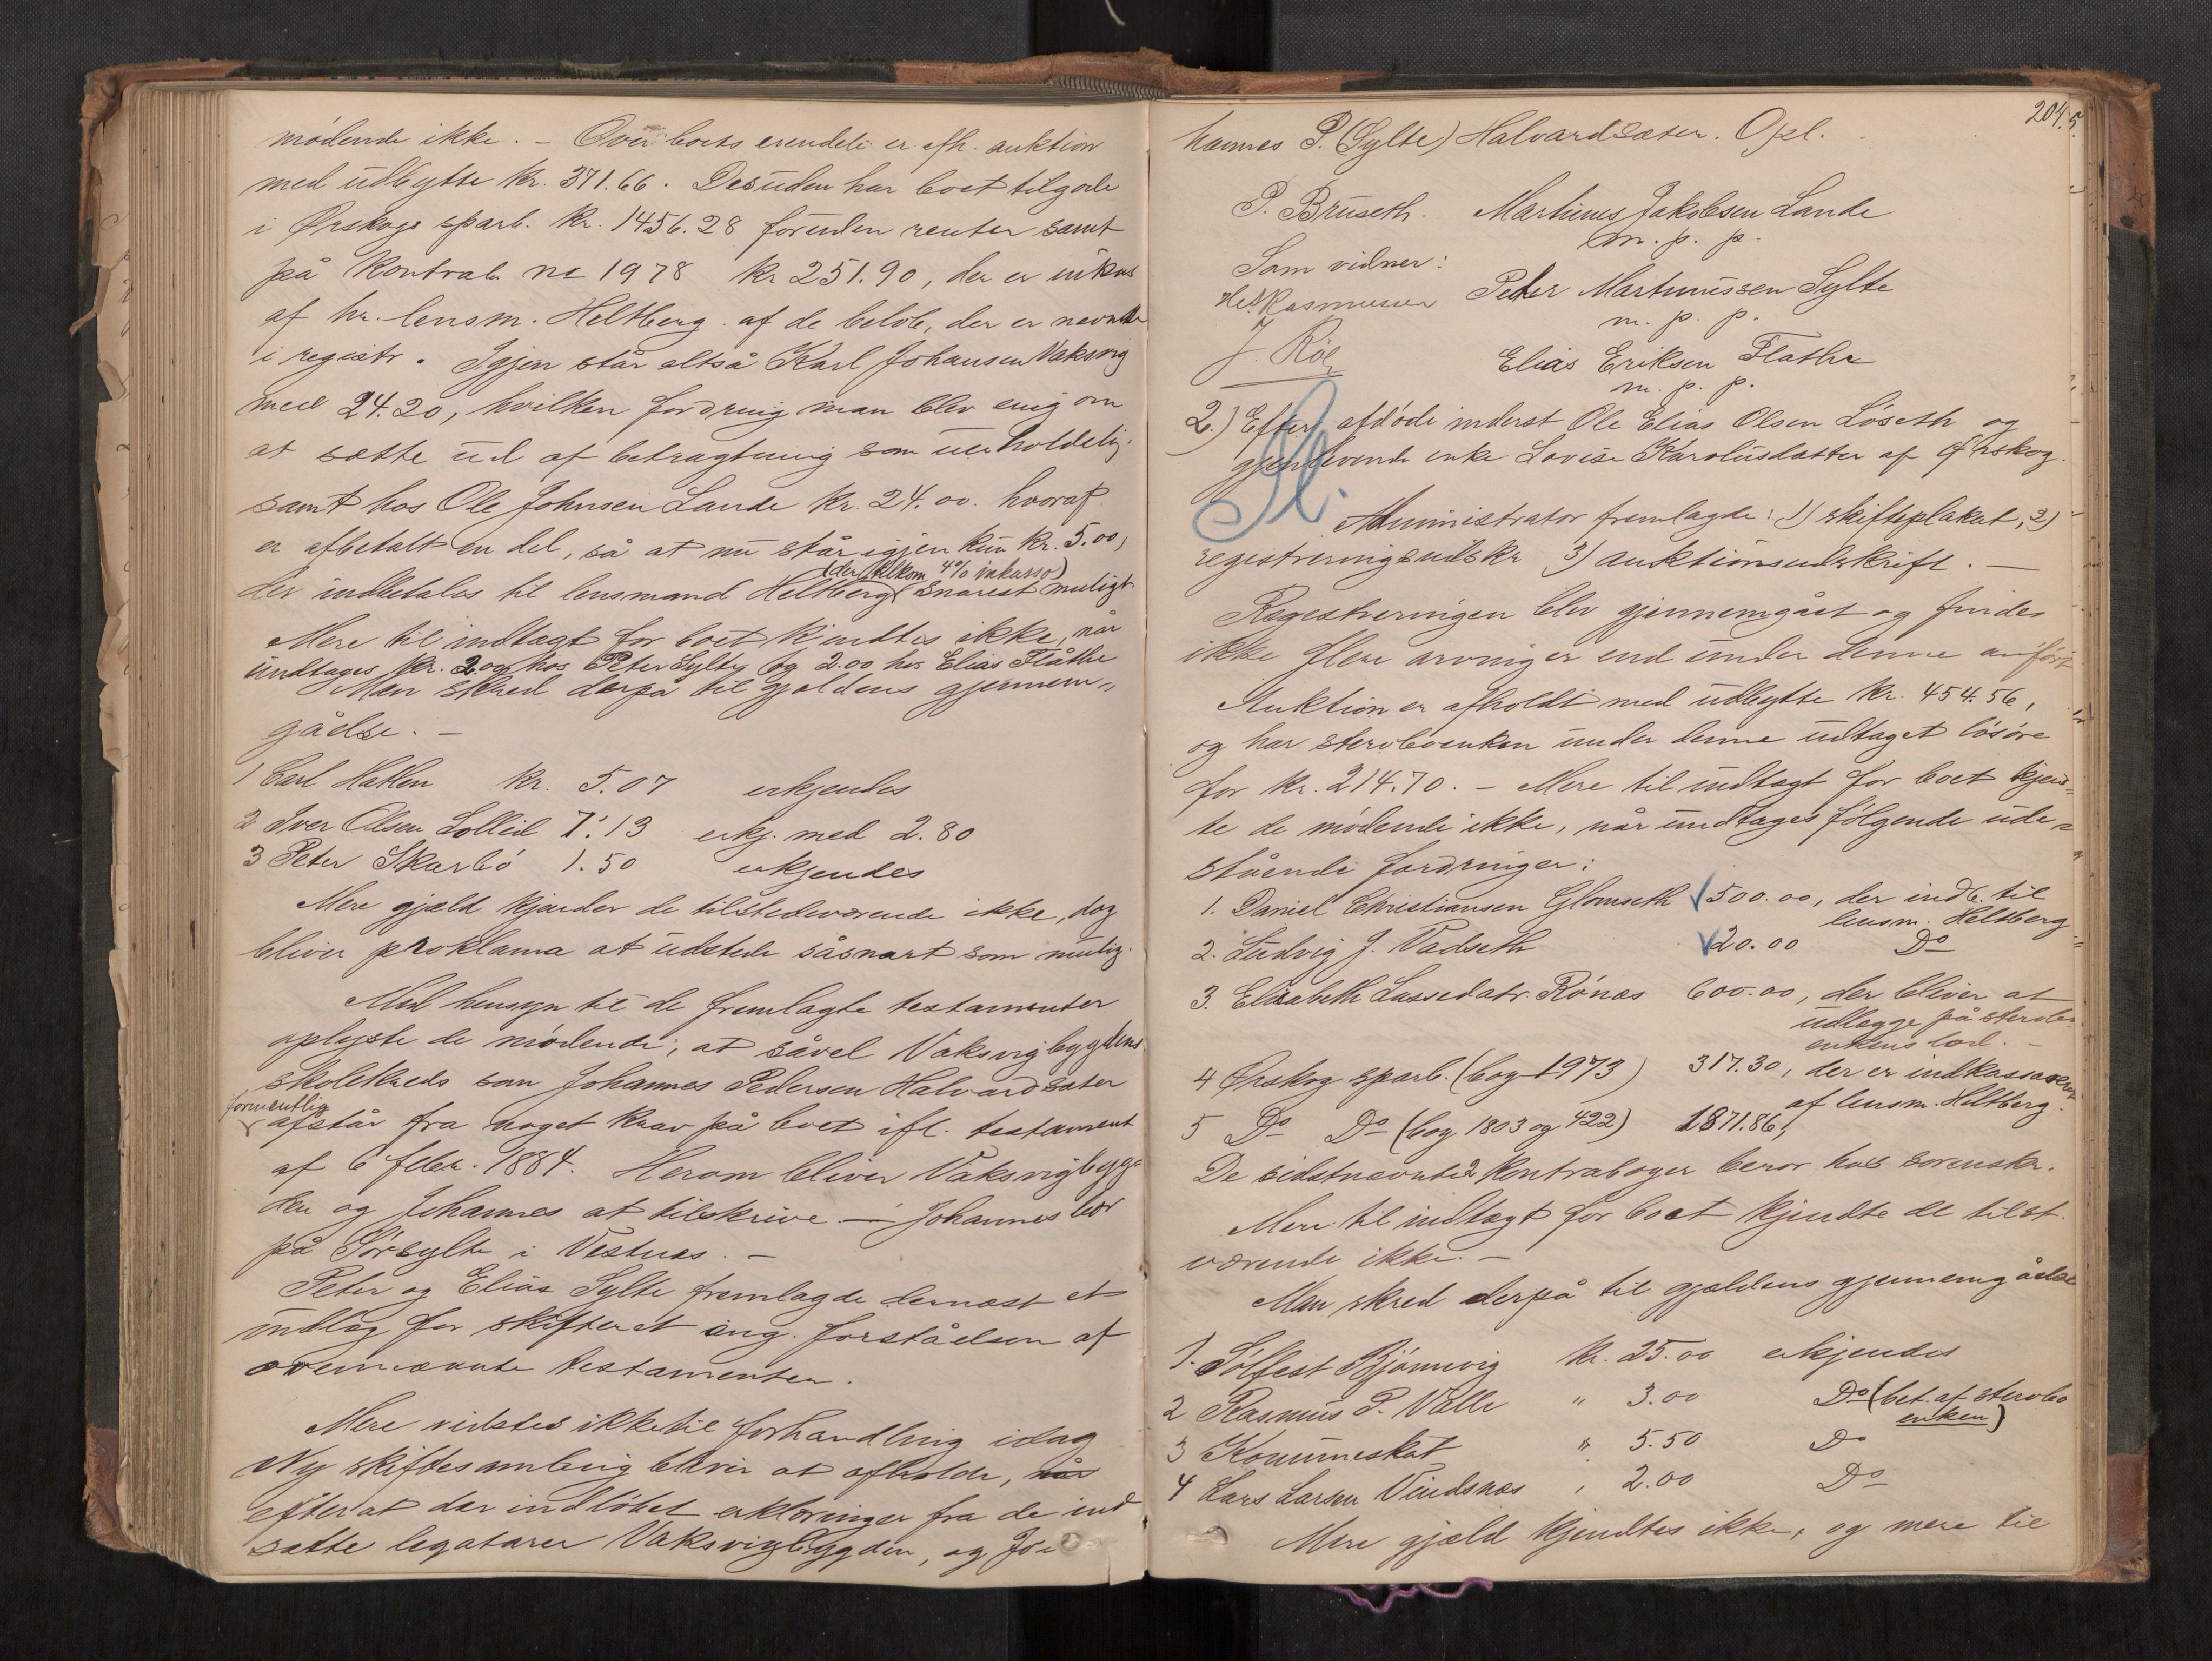 mødende ikke. – Over boets eiendele er afh. auktion
med udbytte kr. 371.66. Desuden har boet tilgode
i Ørskogs sparb. kr. 1456.28 foruden renter samt
på kontrab. no 1978 kr 251.90, der er inkas
af hr. lensm. Heltberg af de beløb, der er nevnte
i registr. Igjen står altså Karl Johansen Vaksvig
med 24.20, hvilken fordring man blev enig om
at sætte ud af betragtning som uerholdelig,
samt hos Ole Johnsen Lande kr. 24.00. hvoraf
er afbetalt en del, så at nu står igjen kun kr. 5.00,
(der tilkom 4% inkasso)
der indbetales til lensmand Heltberg snarest muligt.
Mere til indtægt for boet kjendtes ikke, når
undtages kr. 2.00 hos Peter Sylte og 2.00 hos Elias Flåthe
Man skred derpå til gjældens gjennem-
gåelse. –
1 Carl Hatlen kr. 5.07 erkjendes
2 Iver Olsen Solleid 7.13 erkj. med 2.80
3 Peter Skarbø 1.50 erkjendes
Mere gjæld kjender de tilstedeværende ikke, dog
bliver proklama at udstede såsnart som mulig.
Med hensyn til de fremlagte testamenter
oplyste de mødende, at såvel Vaksvigbygdens
skolekreds som Johannes Pedersen Halvardsæter
formentlig
afstår fra noget krav på boet ifl. testament
af 6 febr. 1884. Herom bliver Vaksvigbyg-
den og Johannes at tilskrive – Johannes bor
på Sørsylte i Vestnes. –
Peter og Elias Sylte fremlagde dernæst et
indlæg for skifteret ang. forståelsen af
ovennævnte testamenter.
Mere vidstes ikke til forhandling idag
Ny skiftesamling bliver at afholde, når
efterat der indløbet erklæringer fra de ind
satte legatarer Vaksvigbygden, og Jo-
204.5.
hannes P. (Sylte) Halvardsæter. Opl.
P. Bruseth. Martinus Jakobsen Lande
m. p. p.
Som vidner:
Rasmussen Peter Martinussen Sylte
m. p. p.
J. Røe Elias Eriksen Flathe
m. p. p.
2.) Efter afdøde inderst Ole Elias Olsen Løseth og
gjenlevende enke Lovise Karolusdatter af Ørskog.
Sl.
Administrator fremlagde: 1) skifteplakat, 2)
registreringsudskr 3) auktionsudskrift. –
Registreringen blev gjennemgået og findes
ikke flere arvinger end under denne anført
Auktion er afholdt med udbytte kr. 454.56,
og har sterboenken under denne udtaget løsøre
for kr. 214.70. – Mere til indtægt for boet kjend-
te de mødende ikke, når undtages følgende ude-
stående fordringer:
1. Daniel Christiansen Glomseth 500.00, der indb. til
lensm. Heltberg
2. Ludvig J. Vadseth 20.00 Do
3. Elisabeth Lassedatr. Rønæs 600.00, der bliver at
udlægge på sterbo
enkens lod. –
4 Ørskog sparb. (bog 1973) 317.30, der er indkasseret
af lensm. Heltberg.
5 Do Do (bog 1803 og 422) 1871.86,
De sidstnævnte 2 kontrabøger beror hos sorenskr.
Mere til indtægt for boet kjendte de tilst.
værende ikke. –
Man skred derpå til gjældens gjennemgåelse
1. Sølfest Bjørnevig kr. 25.00 erkjendes
2 Rasmus P. Valle " 3.00 Do (bet. af sterbo
enken)
3 Kommuneskat " 5.50 Do
4 Lars Larsen Vindsnæs , 2.00 Do
Mere gjæld kjendtes ikke, og mere til